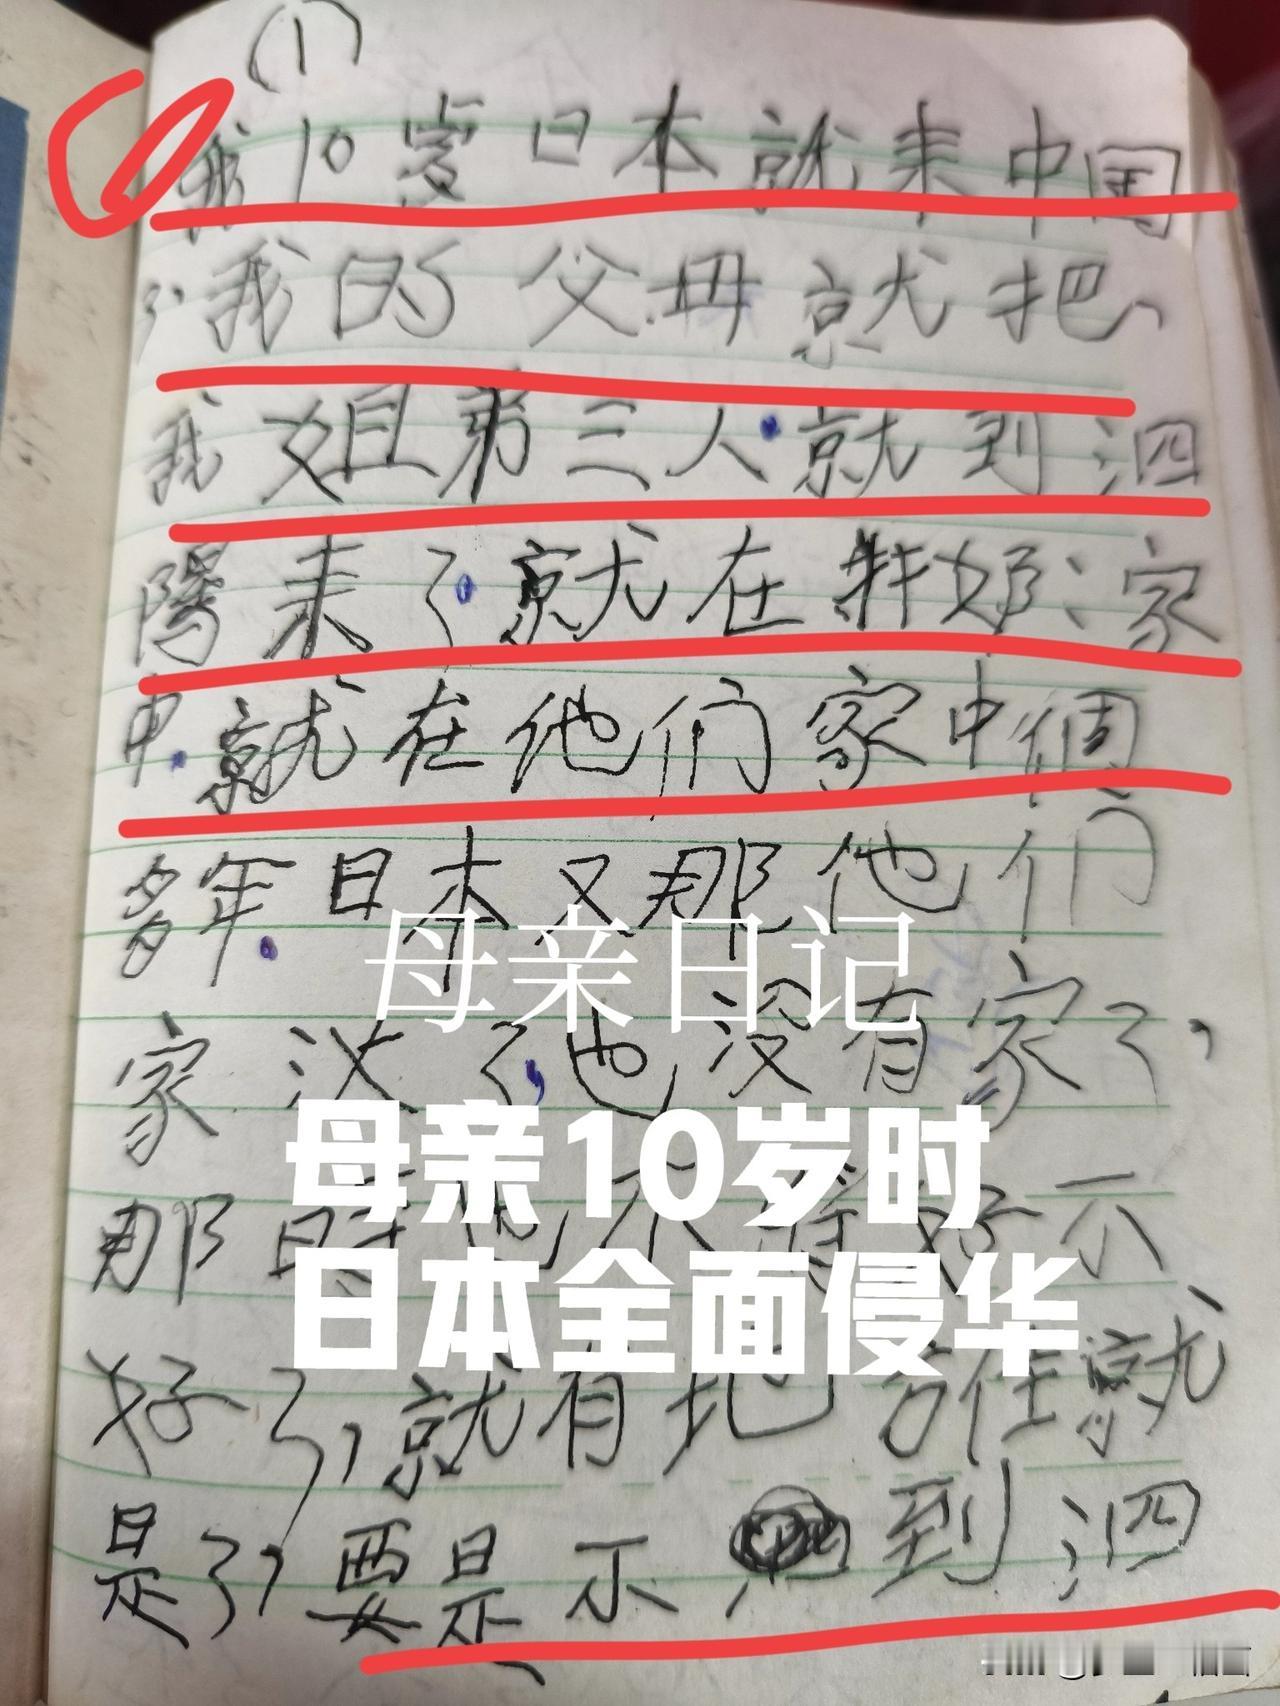 (1)
我10岁日本就来中国
了,我的父母就把
我姐弟三人就到泗
阳来了就在我奶:家
中.就在他们家中個
多年.日本又那他们
母亲日记
家 了,也没有家了,
母亲10岁时
那时也不 好不
日本全面侵华
好了,就有地方住就
是了,要是不 到泗